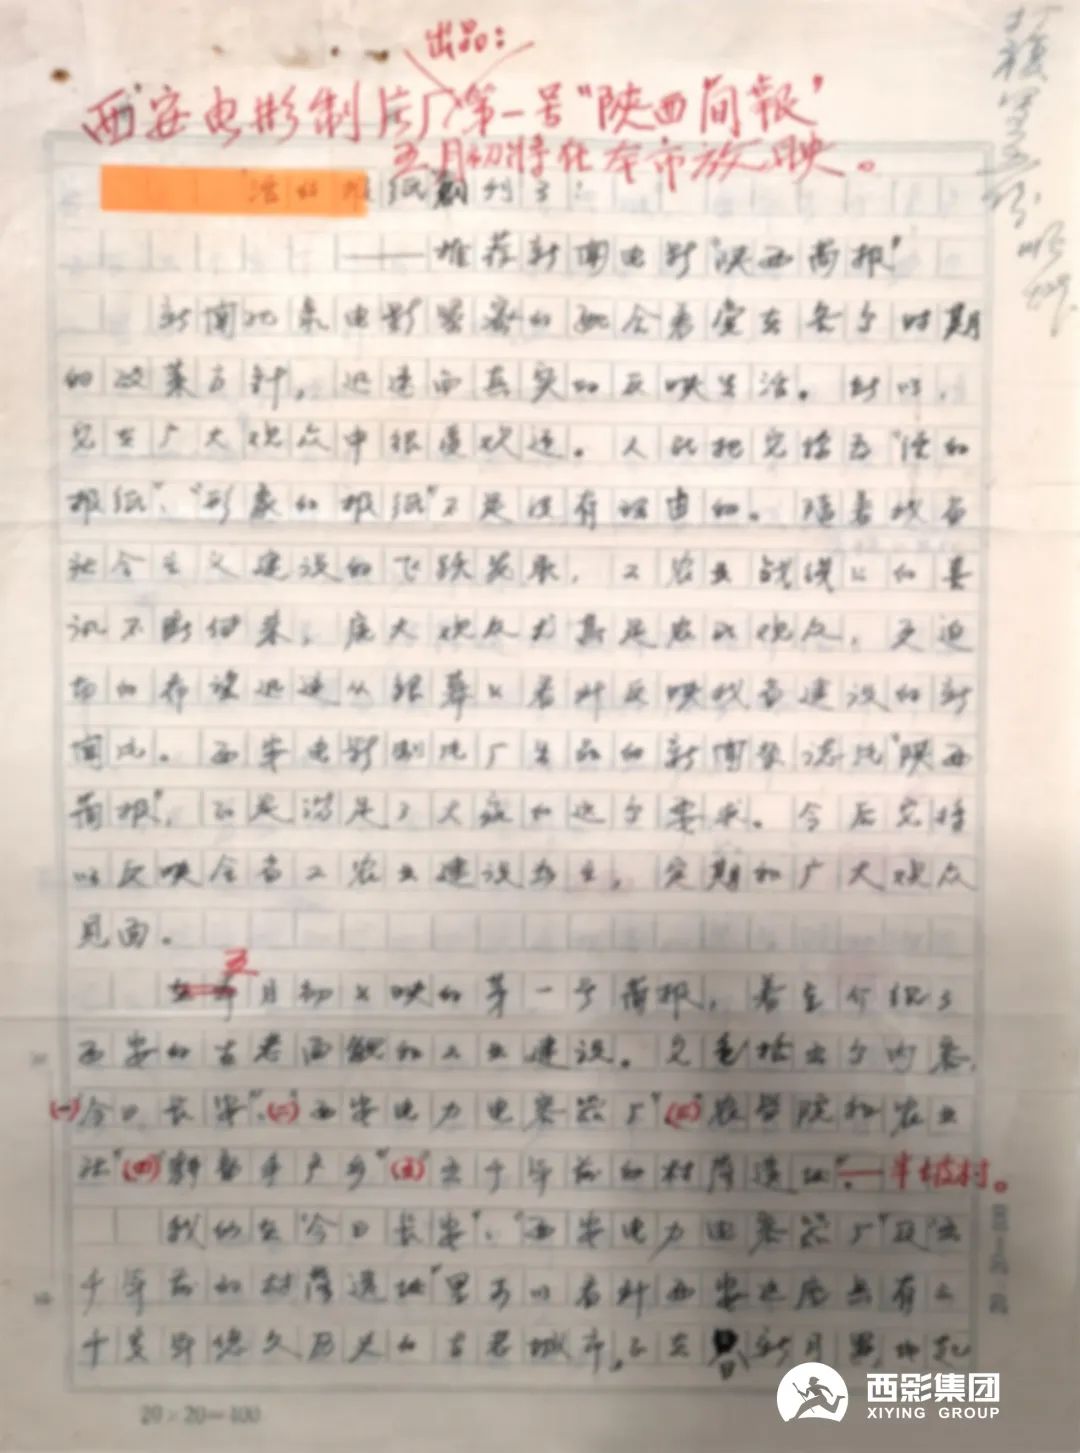 出品：
西安电影制片厂第一号“陕西简报”
五月初将在本市放映。
“活的报纸”创刊了！
——推荐新闻电影“陕西简报”
新闻纪录电影紧密的配合着党在各个时期
的政策方针，迅速而真实的反映生活。所以，
它在广大观众中很受欢迎。人们把它誉为“活的
报纸”、“形象的报纸”不是没有理由的。随着我省
社会主义建设的飞跃发展，工农业战线上的喜
讯不断传来，广大观众尤其是农民观众，更迫
切的希望迅速从银幕上看到反映我省建设的新
闻片。西安电影制片厂出品的新闻杂志片“陕西
简报”，正是满足了大家的这个要求。今后它将
以反映全省工农业建设为主，定期和广大观众
见面。
五月初上映的第一号简报，着重介绍了
西安的古老面貌和工业建设。它包括五个内容，
(一)“今日长安”、(二)“西安电力电容器厂”(三)“农学院和农业
社”(四)“丰产乡”(五)“五千年前的村落遗址”——半坡村。
我们在“今日长安”、“西安电力电容器厂”及“五
千年前的村落遗址”里可以看到西安这座具有二
千多年悠久历史的古老城市，正在新月异
20×20=400
西影集团
XIYING GROUP